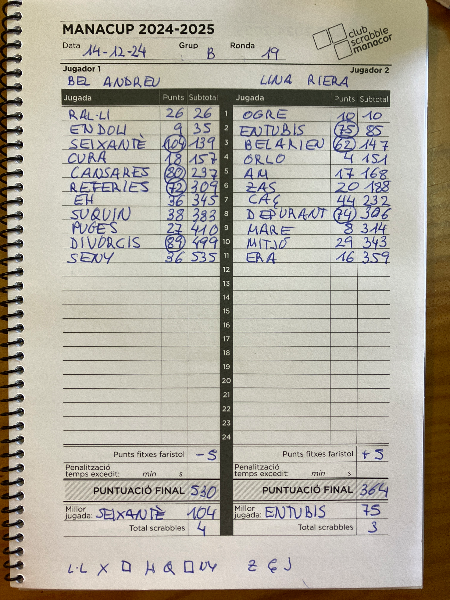 MANACUP 2024-2025
club scrabble manacor
Data 14-12-24 Grup B Ronda 19
Jugador 1 Jugador 2
BEL ANDREU LINA RIERA
Jugada Punts Subtotal Jugada Punts Subtotal
RAL·LI 26 26 1 OGRE 10 10
ENDOLI 9 35 2 ENTUBIS 75 85
SEIXANTÈ 104 139 3 BELARIEN 62 147
CURA 18 157 4 ORLO 4 151
CANSARES 80 237 5 AM 17 168
REFERIES 72 309 6 ZAS 20 188
EH 36 345 7 CAÇ 44 232
SUQUIN 38 383 8 DEPURANT 74 306
PUGES 27 410 9 MARE 8 314
DIVORCIS 89 499 10 MITJÓ 29 343
SENY 36 535 11 ERA 16 359
12
13
14
15
16
17
18
19
20
21
22
23
24
Punts fitxes faristol -5 Punts fitxes faristol +5
Penalització temps excedit: min s Penalització temps excedit: min s
PUNTUACIÓ FINAL 530 PUNTUACIÓ FINAL 364
Millor jugada: SEIXANTÈ 104 Millor jugada: ENTUBIS 75
Total scrabbles 4 Total scrabbles 3
L·L X □ H Q □ NY Z Ç J